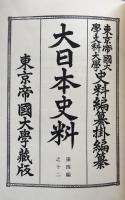 東京帝國大學文科大學史料編纂掛編纂
大日本史料
第四編之十二
東京帝國大學藏版